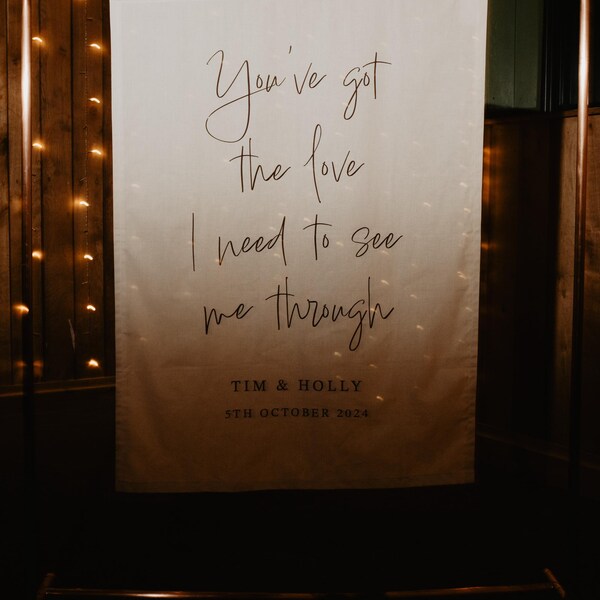 You've got
the love
I need to see
me through
TIM & HOLLY
5TH OCTOBER 2024